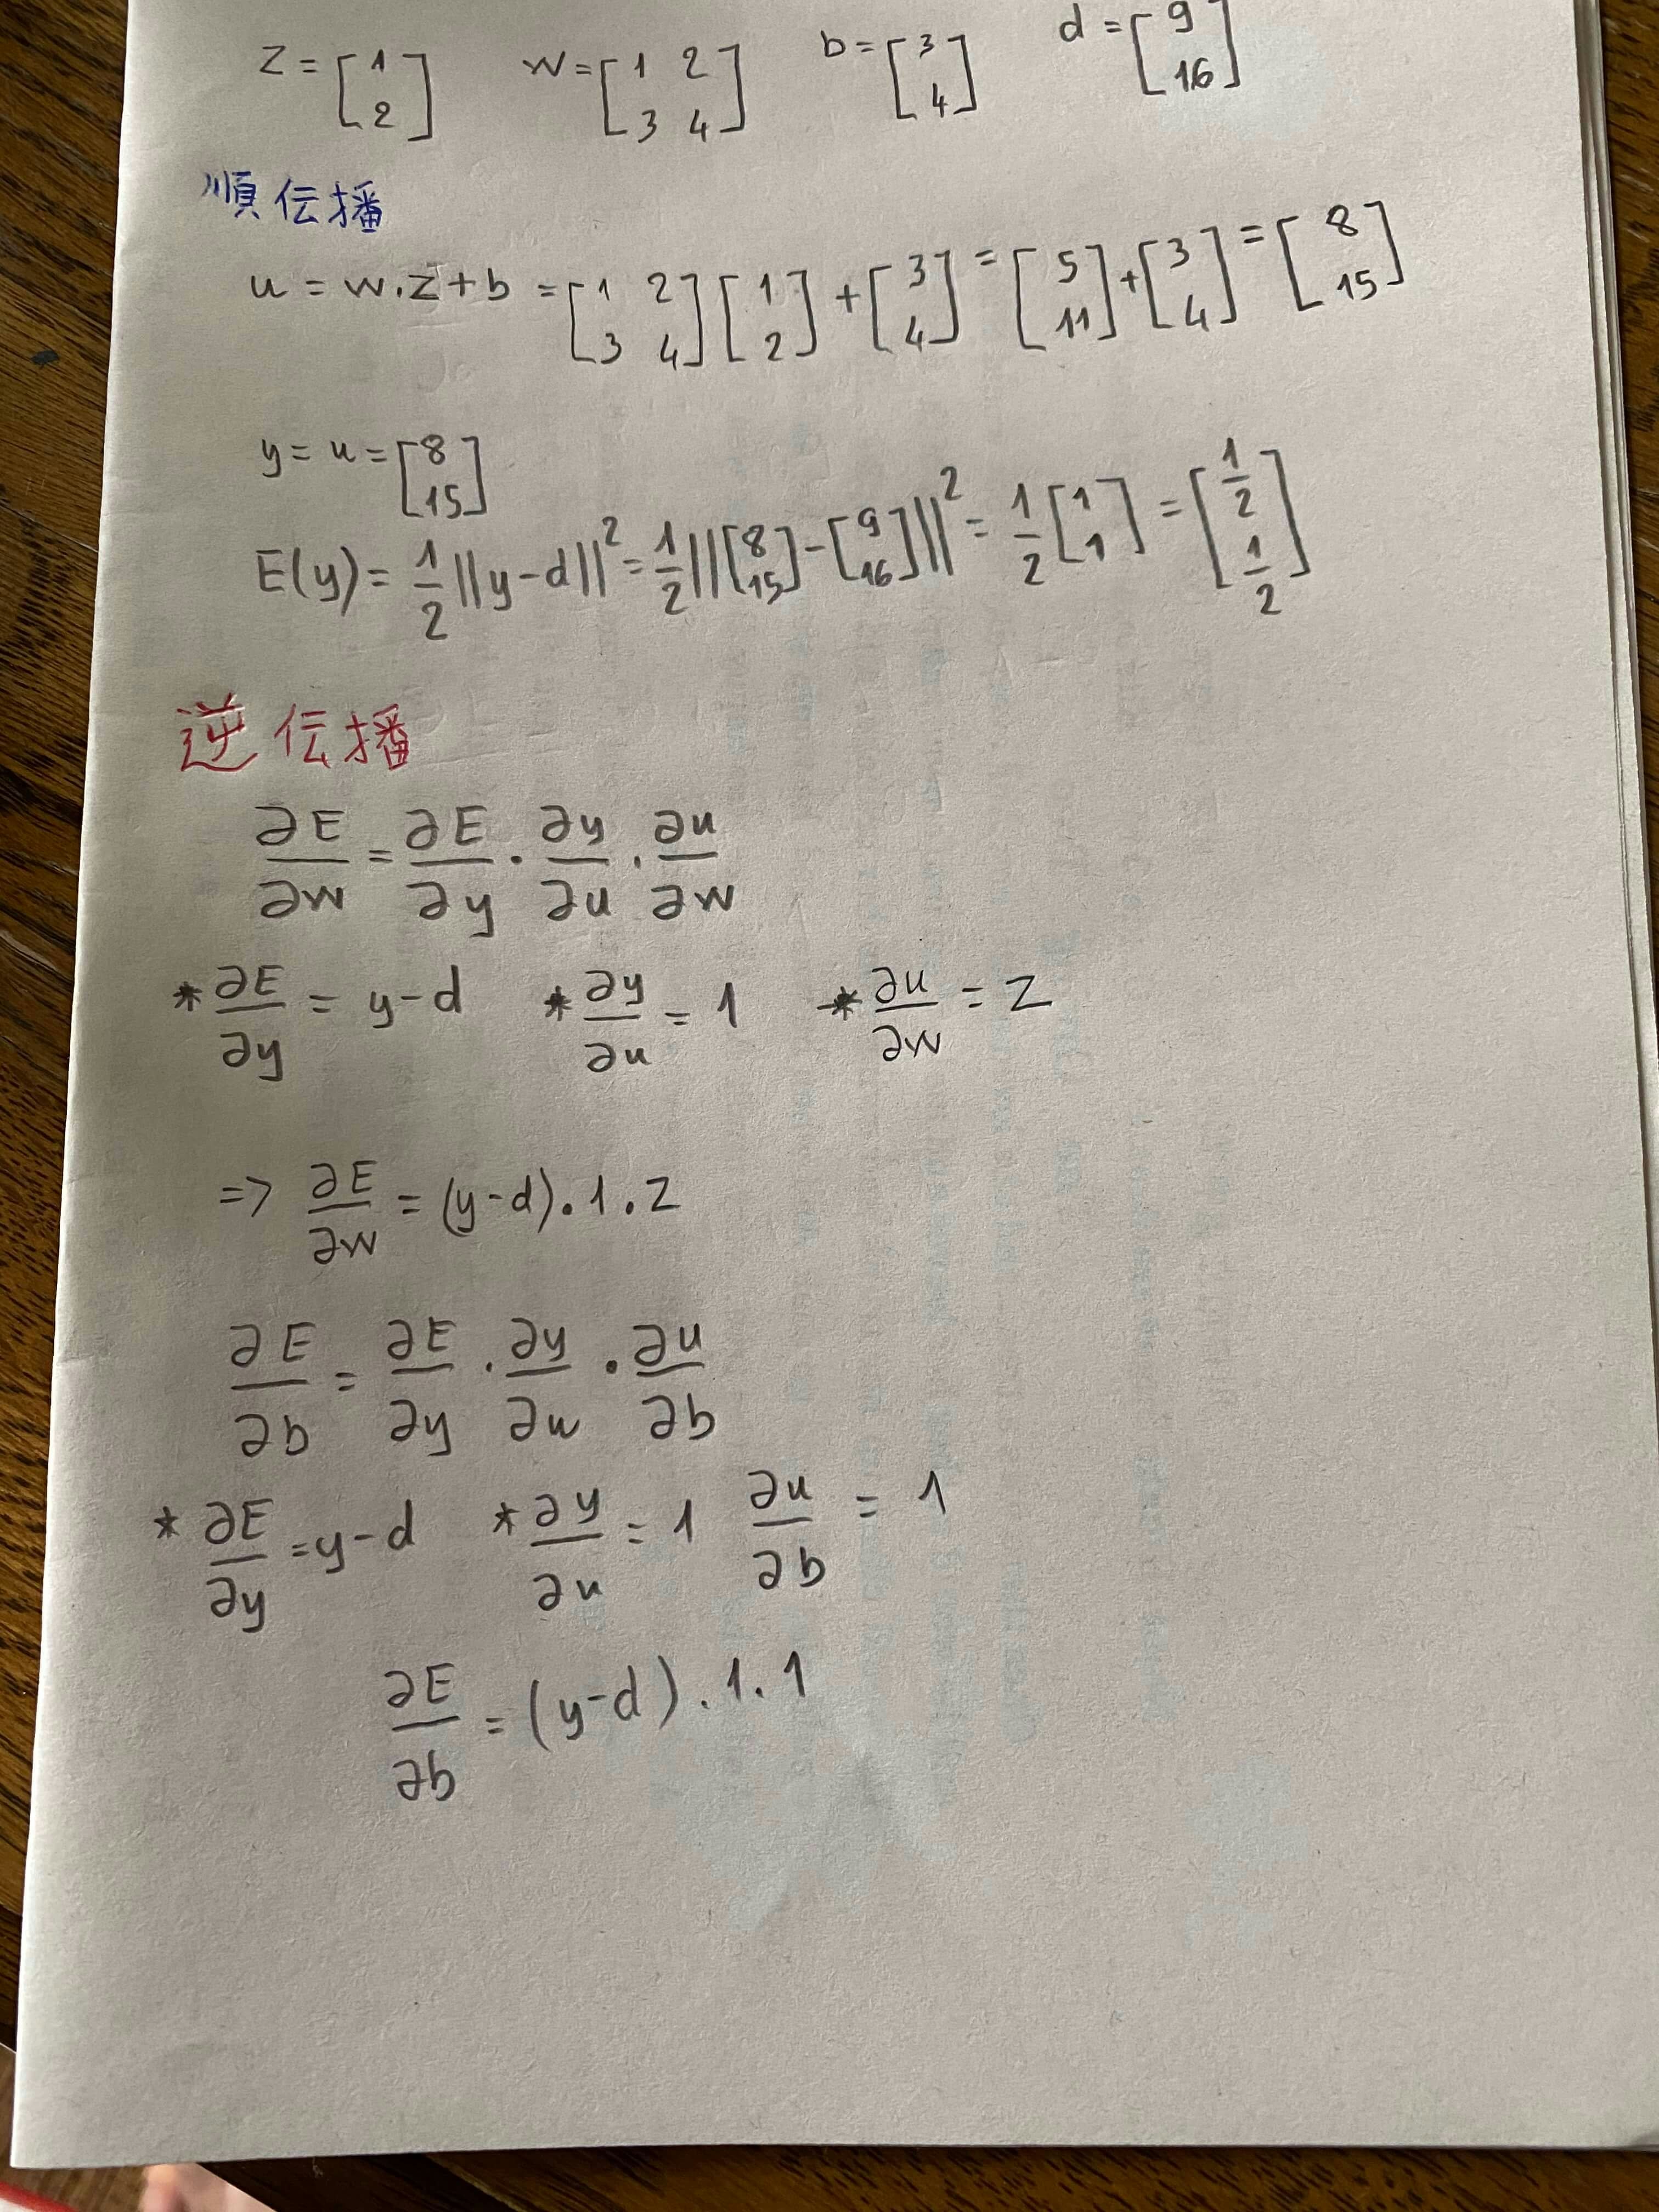 z = [1 2] w = [1 2 3 4] b = [3 4] d = [9 16]
順伝播
u = w.z + b = [1 2 3 4] [1 2] + [3 4] = [5 11] + [3 4] = [8 15]
y = u = [8 15]
E(y) = 1/2 ||y-d||² = 1/2 ||[8 15] - [9 16]||² = 1/2 [1 1] = [1/2 1/2]
逆伝播
∂E/∂w = ∂E/∂y . ∂y/∂u . ∂u/∂w
* ∂E/∂y = y-d * ∂y/∂u = 1 * ∂u/∂w = z
=> ∂E/∂w = (y-d).1.z
∂E/∂b = ∂E/∂y . ∂y/∂u . ∂u/∂b
* ∂E/∂y = y-d * ∂y/∂u = 1 ∂u/∂b = 1
∂E/∂b = (y-d).1.1